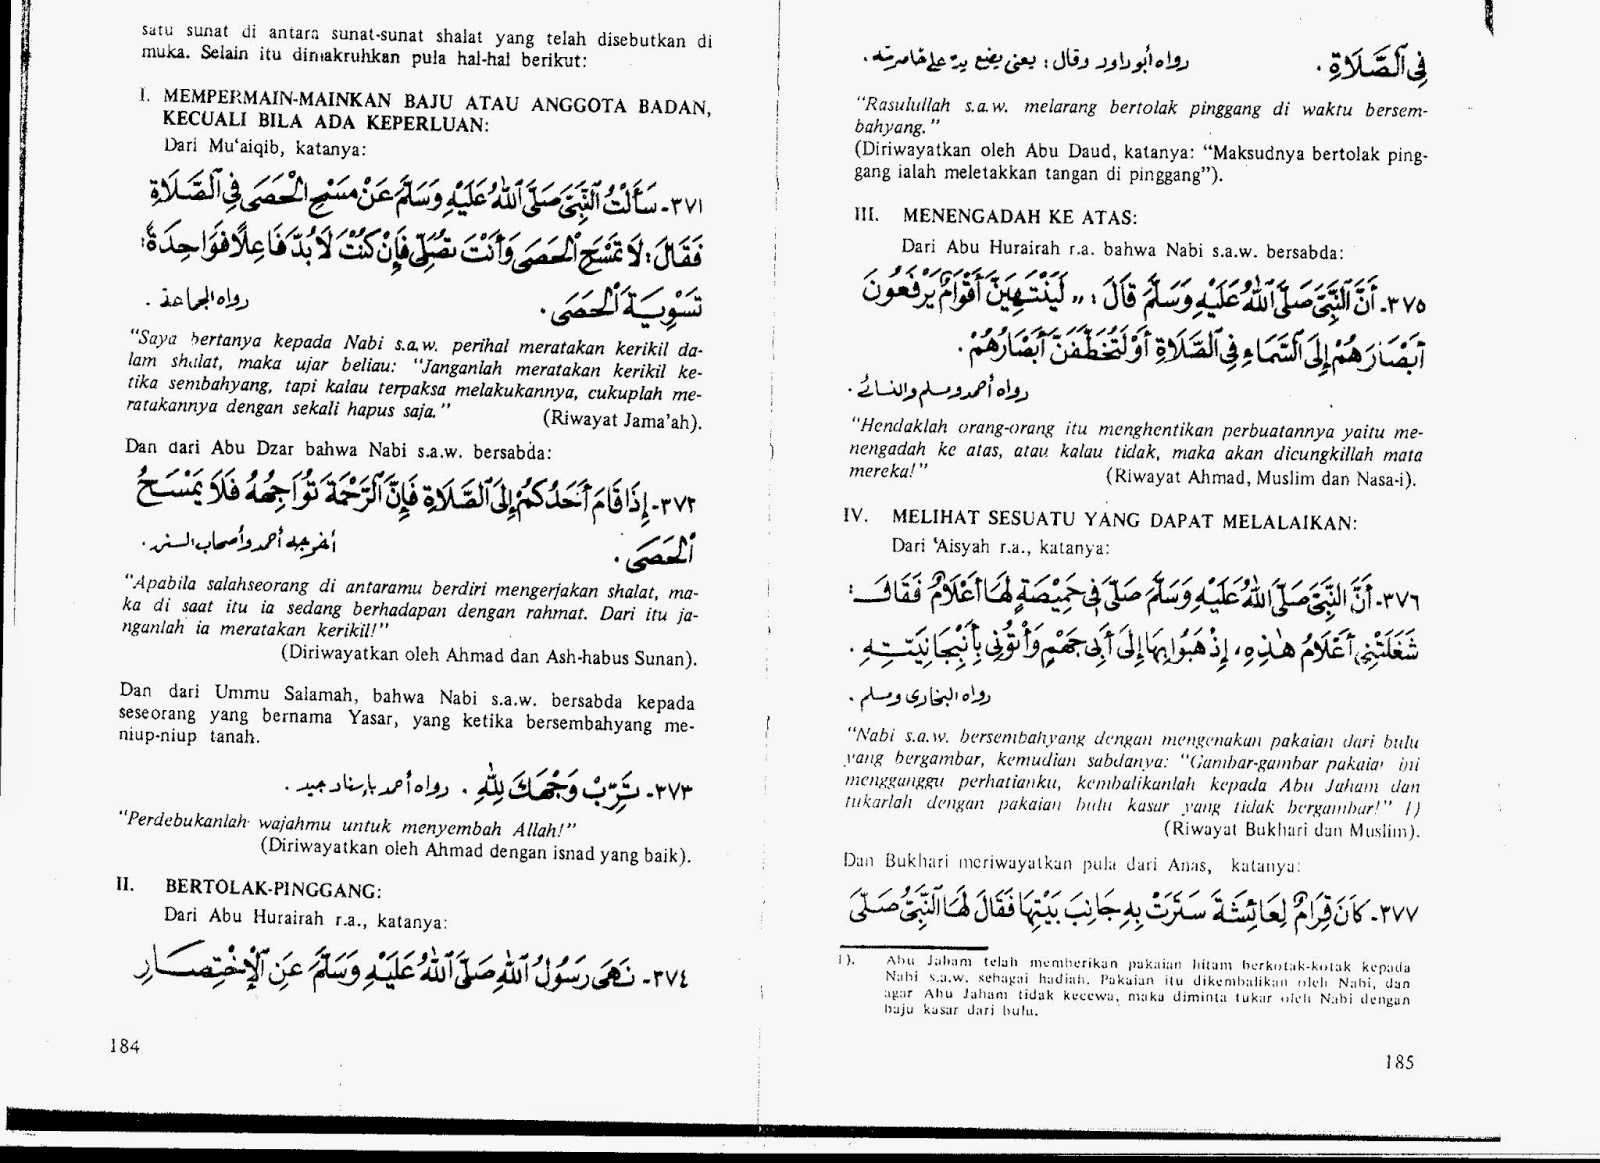 satu sunat di antara sunat-sunat shalat yang telah disebutkan di
muka. Selain itu dimakruhkan pula hal-hal berikut:
I. MEMPERMAIN-MAINKAN BAJU ATAU ANGGOTA BADAN,
KECUALI BILA ADA KEPERLUAN:
Dari Mu‘aiqib, katanya:
٣٧١- سَأَلْتُ النَّبِيَّ صَلَّى اللهُ عَلَيْهِ وَسَلَّمَ عَنْ مَسْحِ الْحَصَى فِي الصَّلَاةِ
فَقَالَ: لَا تَمْسَحِ الْحَصَى وَأَنْتَ تُصَلِّي فَإِنْ كُنْتَ لَا بُدَّ فَاعِلًا فَوَاحِدَةً:
تَسْوِيَةَ الْحَصَى. رواه الجماعة.
“Saya bertanya kepada Nabi s.a.w. perihal meratakan kerikil da-
lam shalat, maka ujar beliau: “Janganlah meratakan kerikil ke-
tika sembahyang, tapi kalau terpaksa melakukannya, cukuplah me-
ratakannya dengan sekali hapus saja.” (Riwayat Jama’ah).
Dan dari Abu Dzar bahwa Nabi s.a.w. bersabda:
٣٧٢- إِذَا قَامَ أَحَدُكُمْ إِلَى الصَّلَاةِ فَإِنَّ الرَّحْمَةَ تُوَاجِهُهُ فَلَا يَمْسَحُ
الْحَصَى. أخرجه أحمد وأصحاب السنن.
“Apabila salahseorang di antaramu berdiri mengerjakan shalat, ma-
ka di saat itu ia sedang berhadapan dengan rahmat. Dari itu ja-
nganlah ia meratakan kerikil!”
(Diriwayatkan oleh Ahmad dan Ash-habus Sunan).
Dan dari Ummu Salamah, bahwa Nabi s.a.w. bersabda kepada
seseorang yang bernama Yasar, yang ketika bersembahyang me-
niup-niup tanah.
٣٧٣- تَرِّبْ وَجْهَكَ لِلهِ. رواه أحمد بإسناد جيد.
“Perdebukanlah wajahmu untuk menyembah Allah!”
(Diriwayatkan oleh Ahmad dengan isnad yang baik).
II. BERTOLAK-PINGGANG:
Dari Abu Hurairah r.a., katanya:
٣٧٤- نَهَى رَسُولُ اللهِ صَلَّى اللهُ عَلَيْهِ وَسَلَّمَ عَنِ الْاِخْتِصَارِ
184
فِي الصَّلَاةِ. رواه أبو داود وقال: يعني يضع يده على خاصرته.
“Rasulullah s.a.w. melarang bertolak pinggang di waktu bersem-
bahyang.”
(Diriwayatkan oleh Abu Daud, katanya: “Maksudnya bertolak ping-
gang ialah meletakkan tangan di pinggang”).
III. MENENGADAH KE ATAS:
Dari Abu Hurairah r.a. bahwa Nabi s.a.w. bersabda:
٣٧٥- أَنَّ النَّبِيَّ صَلَّى اللهُ عَلَيْهِ وَسَلَّمَ قَالَ: ,, لَيَنْتَهِيَنَّ أَقْوَامٌ يَرْفَعُونَ
أَبْصَارَهُمْ إِلَى السَّمَاءِ فِي الصَّلَاةِ أَوْ لَتُخْطَفَنَّ أَبْصَارُهُمْ.
رواه أحمد ومسلم والنسائي.
“Hendaklah orang-orang itu menghentikan perbuatannya yaitu me-
nengadah ke atas, atau kalau tidak, maka akan dicungkillah mata
mereka!” (Riwayat Ahmad, Muslim dan Nasa-i).
IV. MELIHAT SESUATU YANG DAPAT MELALAIKAN:
Dari ‘Aisyah r.a., katanya:
٣٧٦- أَنَّ النَّبِيَّ صَلَّى اللهُ عَلَيْهِ وَسَلَّمَ صَلَّى فِي خَمِيْصَةٍ لَهَا أَعْلَامٌ فَقَالَ:
شَغَلَتْنِي أَعْلَامُ هٰذِهِ، إِذْهَبُوا بِهَا إِلَى أَبِي جَهْمٍ وَأْتُونِي بِأَنْبِجَانِيَّتِهِ.
رواه البخاري ومسلم.
“Nabi s.a.w. bersembahyang dengan mengenakan pakaian dari bulu
yang bergambar, kemudian sabdanya: “Gambar-gambar pakaian ini
mengganggu perhatianku, kembalikanlah kepada Abu Jaham dan
tukarlah dengan pakaian bulu kasar yang tidak bergambar!” 1)
(Riwayat Bukhari dan Muslim).
Dan Bukhari meriwayatkan pula dari Anas, katanya:
٣٧٧- كَانَ قِرَامٌ لِعَائِشَةَ سَتَرَتْ بِهِ جَانِبَ بَيْتِهَا فَقَالَ لَهَا النَّبِيُّ صَلَّى
1). Abu Jaham telah memberikan pakaian hitam berkotak-kotak kepada
Nabi s.a.w. sebagai hadiah. Pakaian itu dikembalikan oleh Nabi, dan
agar Abu Jaham tidak kecewa, maka diminta tukar oleh Nabi dengan
baju kasar dari bulu.
185